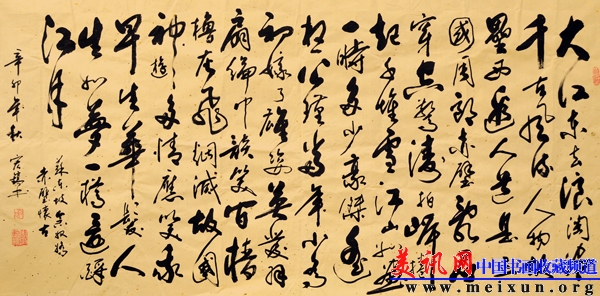 大江东去浪淘尽
千古风流人物故
垒西边人道是三
國周郎赤壁乱石
穿空惊涛拍岸捲
起千堆雪江山如画
一時多少豪傑遥
想公瑾当年小乔
初嫁了雄姿英发羽
扇纶巾談笑间樯
橹灰飞烟滅故国
神游多情應笑我
早生華髮人
生如夢一樽還酹
江月
蘇东坡念奴娇
赤壁怀古
辛卯年秋
美讯网 中国书画收藏频道
www.meixun.org